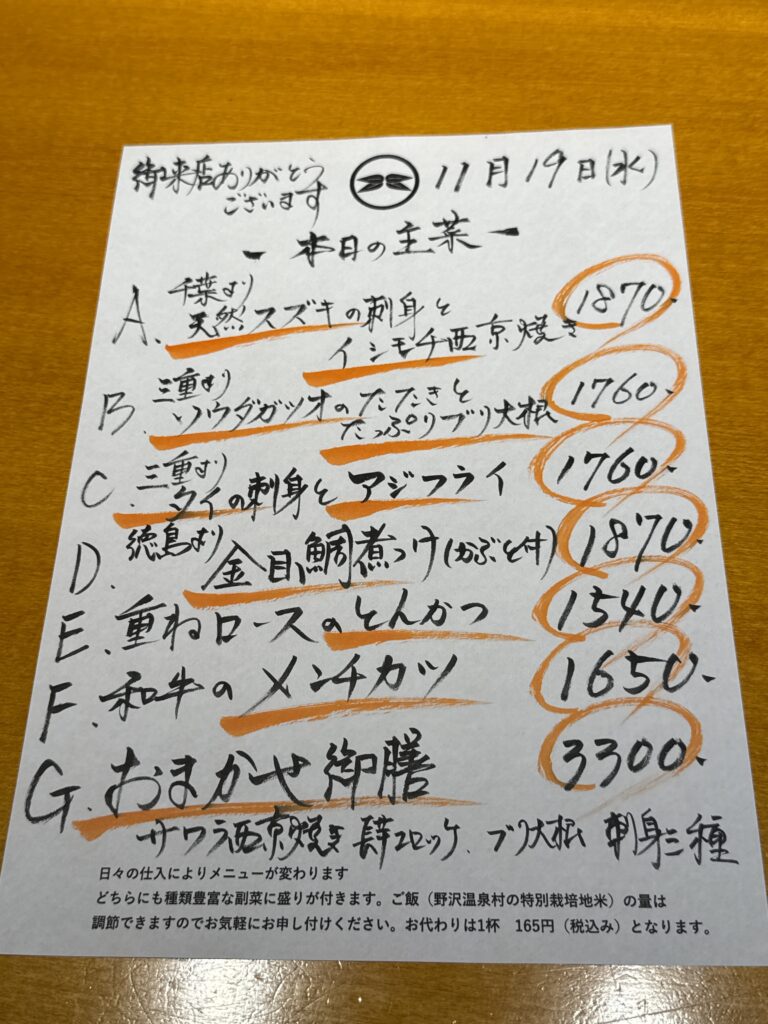 御来店ありがとう
ございます
11月19日(水)
ー 本日の主菜 ー
A. 千葉より
天然スズキの刺身と
イシモチ西京焼き
1870.
B. 三重より
ソウダガツオのたたきと
たっぷりブリ大根
1760.
C. 三重より
タイの刺身とアジフライ
1760.
D. 徳島より
金目鯛煮つけ(かぶと付)
1870.
E. 重ねロースのとんかつ
1540.
F. 和牛のメンチカツ
1650.
G. おまかせ御膳
3300.
サワラ西京焼き コロッケ、ブリ大根 刺身三種
日々の仕入によりメニューが変わります
どちらにも種類豊富な副菜に盛りが付きます。ご飯(野沢温泉村の特別栽培地米)の量は
調節できますのでお気軽にお申し付けください。お代わりは1杯 165円(税込み)となります。